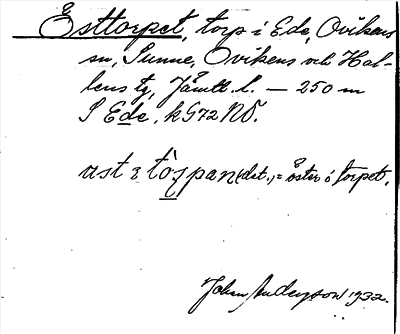 Esttorpet, torp i Ede, Ovikens
sn, Sunne, Ovikens och Hal-
lens tg, Jämtl. l. — 250 m
S Ede, k 972 NV.
ast i tɷ̀špan (dat.) = öster i torpet.
Johan Anderzson 1932.